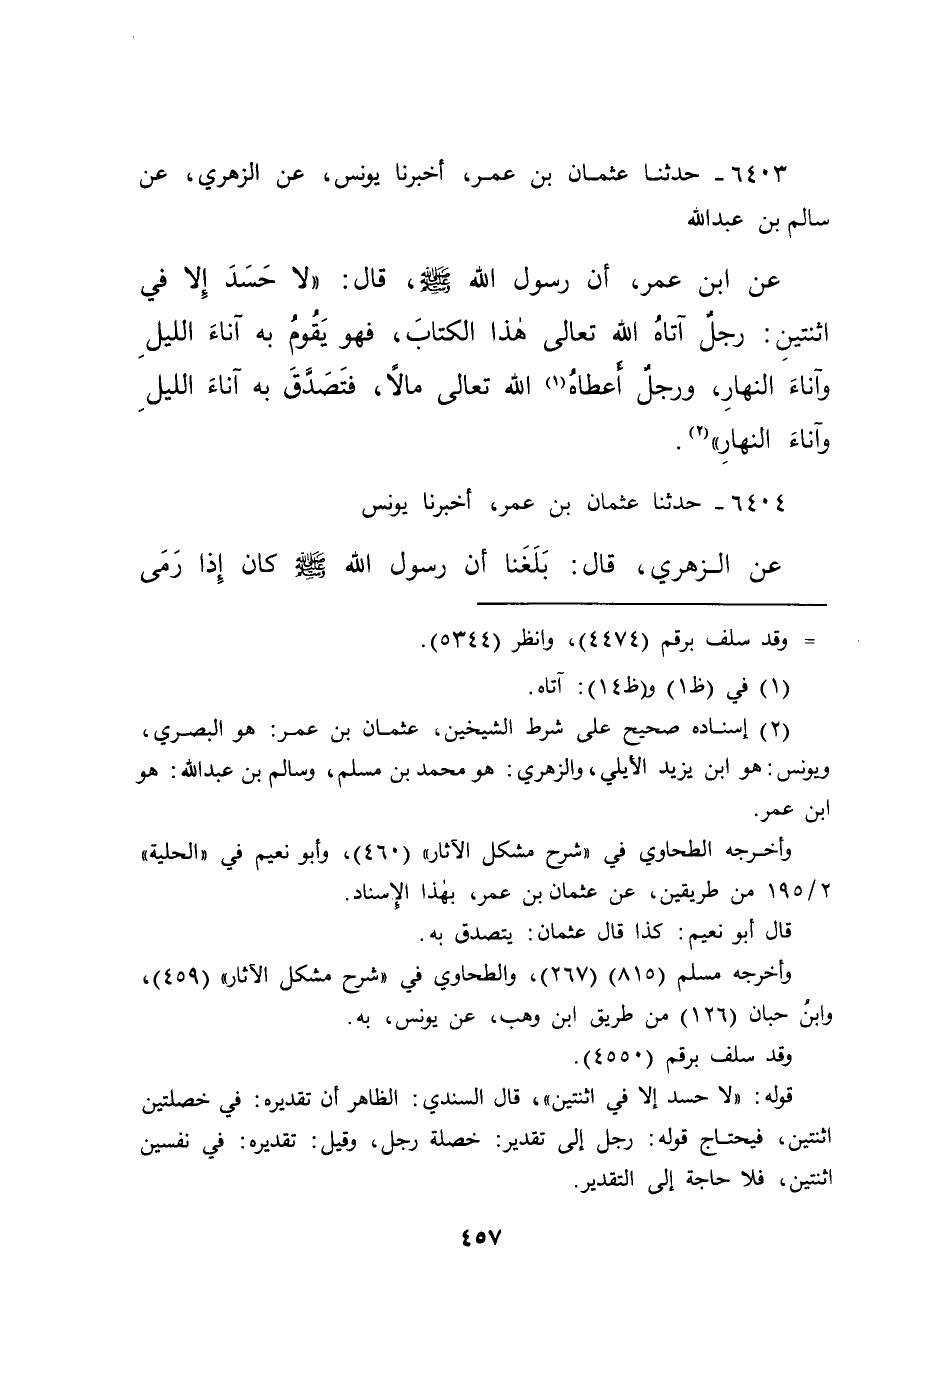 ٦٤٠٣ - حدثنا عثمان بن عمر، أخبرنا يونس، عن الزهري، عن
سالم بن عبدالله
عن ابن عمر، أن رسول الله ﷺ، قال: «لا حَسَدَ إِلا في
اثنتينِ: رجلٌ آتاهُ الله تعالى هٰذا الكتابَ، فهو يَقُومُ به آناءَ الليلِ
وآناءَ النهارِ، ورجلٌ أَعطاهُ(١) الله تعالى مالًا، فتَصَدَّقَ به آناءَ الليلِ
وآناءَ النهارِ»(٢).
٦٤٠٤ - حدثنا عثمان بن عمر، أخبرنا يونس
عن الزهري، قال: بَلَغَنا أن رسول الله ﷺ كان إِذا رَمَى
= وقد سلف برقم (٤٤٧٤)، وانظر (٥٣٤٤).
(١) في (ظ١) و(ظ١٤): آتاه.
(٢) إسناده صحيح على شرط الشيخين، عثمان بن عمر: هو البصري،
ويونس: هو ابن يزيد الأيلي، والزهري: هو محمد بن مسلم، وسالم بن عبدالله: هو
ابن عمر.
وأخرجه الطحاوي في «شرح مشكل الآثار» (٤٦٠)، وأبو نعيم في «الحلية»
١٩٥/٢ من طريقين، عن عثمان بن عمر، بهٰذا الإِسناد.
قال أبو نعيم: كذا قال عثمان: يتصدق به.
وأخرجه مسلم (٨١٥) (٢٦٧)، والطحاوي في «شرح مشكل الآثار» (٤٥٩)،
وابنُ حبان (١٢٦) من طريق ابن وهب، عن يونس، به.
وقد سلف برقم (٤٥٥٠).
قوله: «لا حسد إلا في اثنتين»، قال السندي: الظاهر أن تقديره: في خصلتين
اثنتين، فيحتاج قوله: رجل إلى تقدير: خصلة رجل، وقيل: تقديره: في نفسين
اثنتين، فلا حاجة إلى التقدير.
٤٥٧